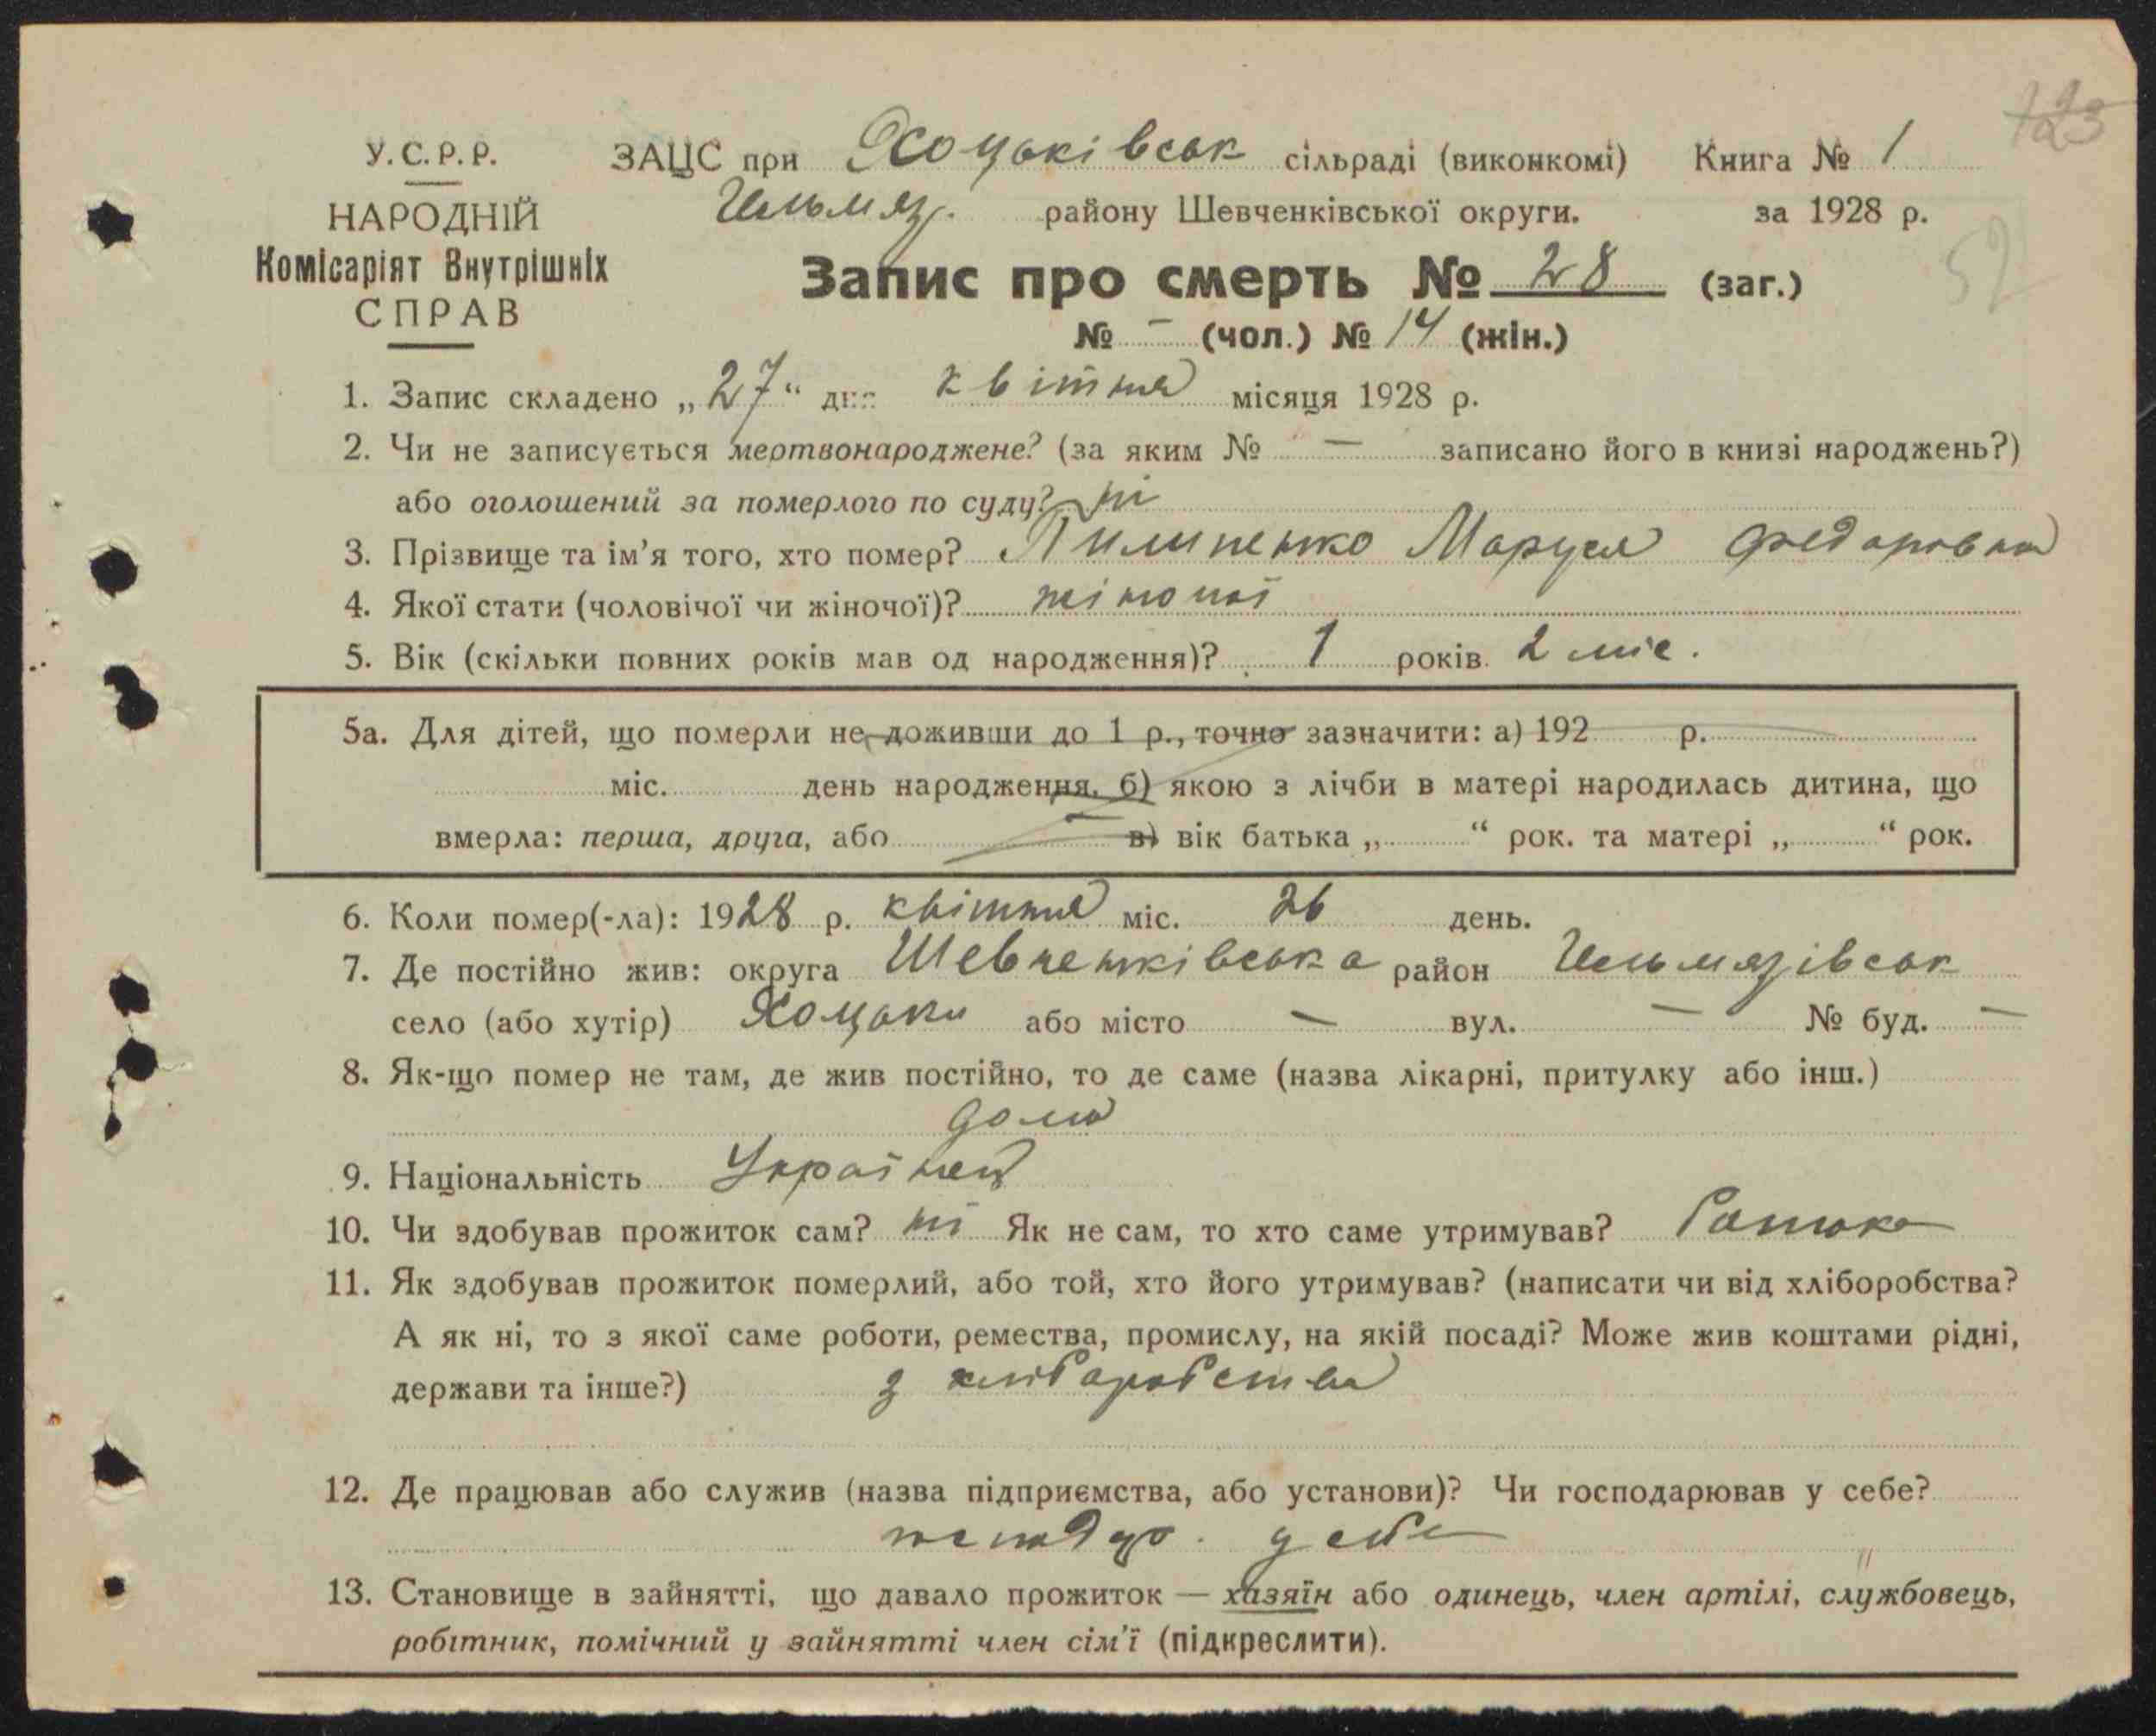 123
У.С.Р.Р.
НАРОДНІЙ
Комісаріят Внутрішніх
СПРАВ
ЗАЦС при Хоцьківськ сільраді (виконкомі) Книга № 1
Гельмяз. району Шевченківської округи. за 1928 р.
52
Запис про смерть № 28 (заг.)
№ – (чол.) № 14 (жін.)
1. Запис складено „27“ дня квітня місяця 1928 р.
2. Чи не записується мертвонароджене? (за яким № — записано його в книзі народжень?)
або оголошений за померлого по суду? ні
3. Прізвище та ім’я того, хто помер? Пилипенко Маруся Федоровна
4. Якої стати (чоловічої чи жіночої)? жіночої
5. Вік (скільки повних років мав од народження)? 1 років 2 міс.
5а. Для дітей, що померли не доживши до 1 р., точно зазначити: а) 192 р.
міс. день народження. б) якою з лічби в матері народилась дитина, що
вмерла: перша, друга, або в) вік батька „ “ рок. та матері „ “ рок.
6. Коли помер(-ла): 1928 р. квітня міс. 26 день.
7. Де постійно жив: округа Шевченківська район Гельмязівськ
село (або хутір) Хоцьки або місто — вул. — № буд. —
8. Як-що помер не там, де жив постійно, то де саме (назва лікарні, притулку або інш.)
дома
9. Національність Українка
10. Чи здобував прожиток сам? ні Як не сам, то хто саме утримував? батько
11. Як здобував прожиток померлий, або той, хто його утримував? (написати чи від хліборобства?
А як ні, то з якої саме роботи, ремества, промислу, на якій посаді? Може жив коштами рідні,
держави та інше?) з хліборобства
12. Де працював або служив (назва підприємства, або установи)? Чи господарював у себе?
у себе
13. Становище в зайнятті, що давало прожиток — хазяїн або одинець, член артілі, службовець,
робітник, помічний у зайнятті член сім’ї (підкреслити).